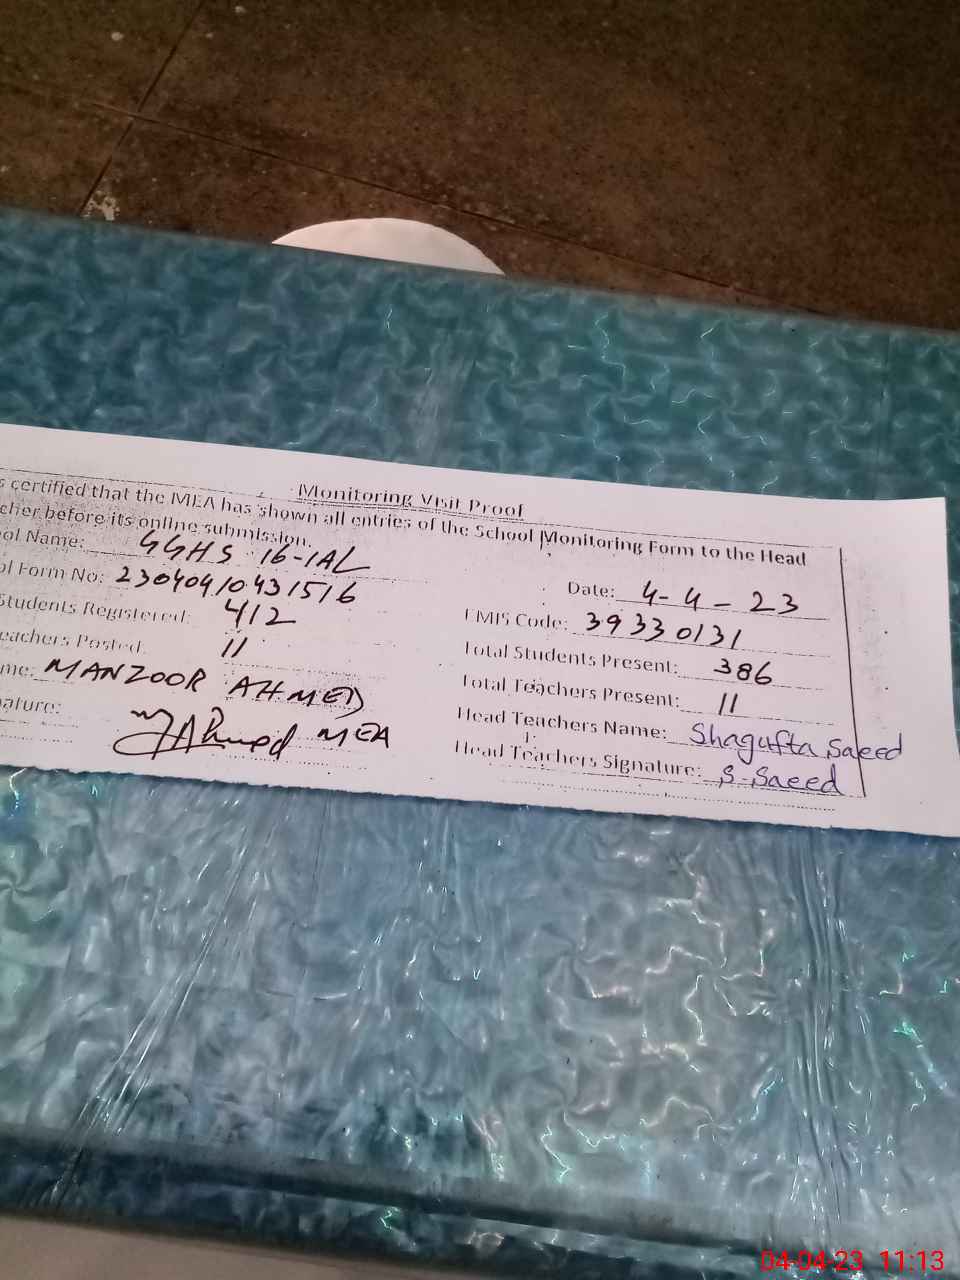 Monitoring Visit Proof
s certified that the MEA has shown all entries of the School Monitoring Form to the Head
cher before its online submission.
ol Name: GGHS 16-1AL
Date: 4-4-23
ol Form No: 23040410431516
EMIS Code: 39330131
Students Registered: 412
Total Students Present: 386
eachers Posted: 11
Total Teachers Present: 11
me: MANZOOR AHMED
Head Teachers Name: Shagufta Saeed
nature: Ahmed MEA
Head Teachers Signature: S-Saeed
04-04-23 11:13